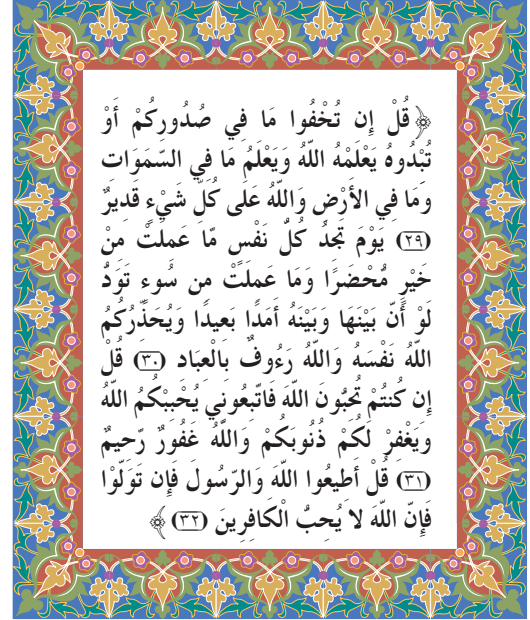 ﴿ قُلْ إِن تُخْفُوا مَا فِي صُدُورِكُمْ أَوْ
تُبْدُوهُ يَعْلَمْهُ اللَّهُ وَيَعْلَمُ مَا فِي السَّمَوَاتِ
وَمَا فِي الأَرْضِ وَاللَّهُ عَلَى كُلِّ شَيْءٍ قَدِيرٌ
(٢٩) يَوْمَ تَجِدُ كُلُّ نَفْسٍ مَّا عَمِلَتْ مِنْ
خَيْرٍ مُّحْضَرًا وَمَا عَمِلَتْ مِن سُوءٍ تَوَدُّ
لَوْ أَنَّ بَيْنَهَا وَبَيْنَهُ أَمَدًا بَعِيدًا وَيُحَذِّرُكُمُ
اللَّهُ نَفْسَهُ وَاللَّهُ رَءُوفٌ بِالْعِبَادِ (٣٠) قُلْ
إِن كُنتُمْ تُحِبُّونَ اللَّهَ فَاتَّبِعُونِي يُحْبِبْكُمُ اللَّهُ
وَيَغْفِرْ لَكُمْ ذُنُوبَكُمْ وَاللَّهُ غَفُورٌ رَّحِيمٌ
(٣١) قُلْ أَطِيعُوا اللَّهَ وَالرَّسُولَ فَإِن تَوَلَّوْا
فَإِنَّ اللَّهَ لا يُحِبُّ الْكَافِرِينَ (٣٢) ﴾